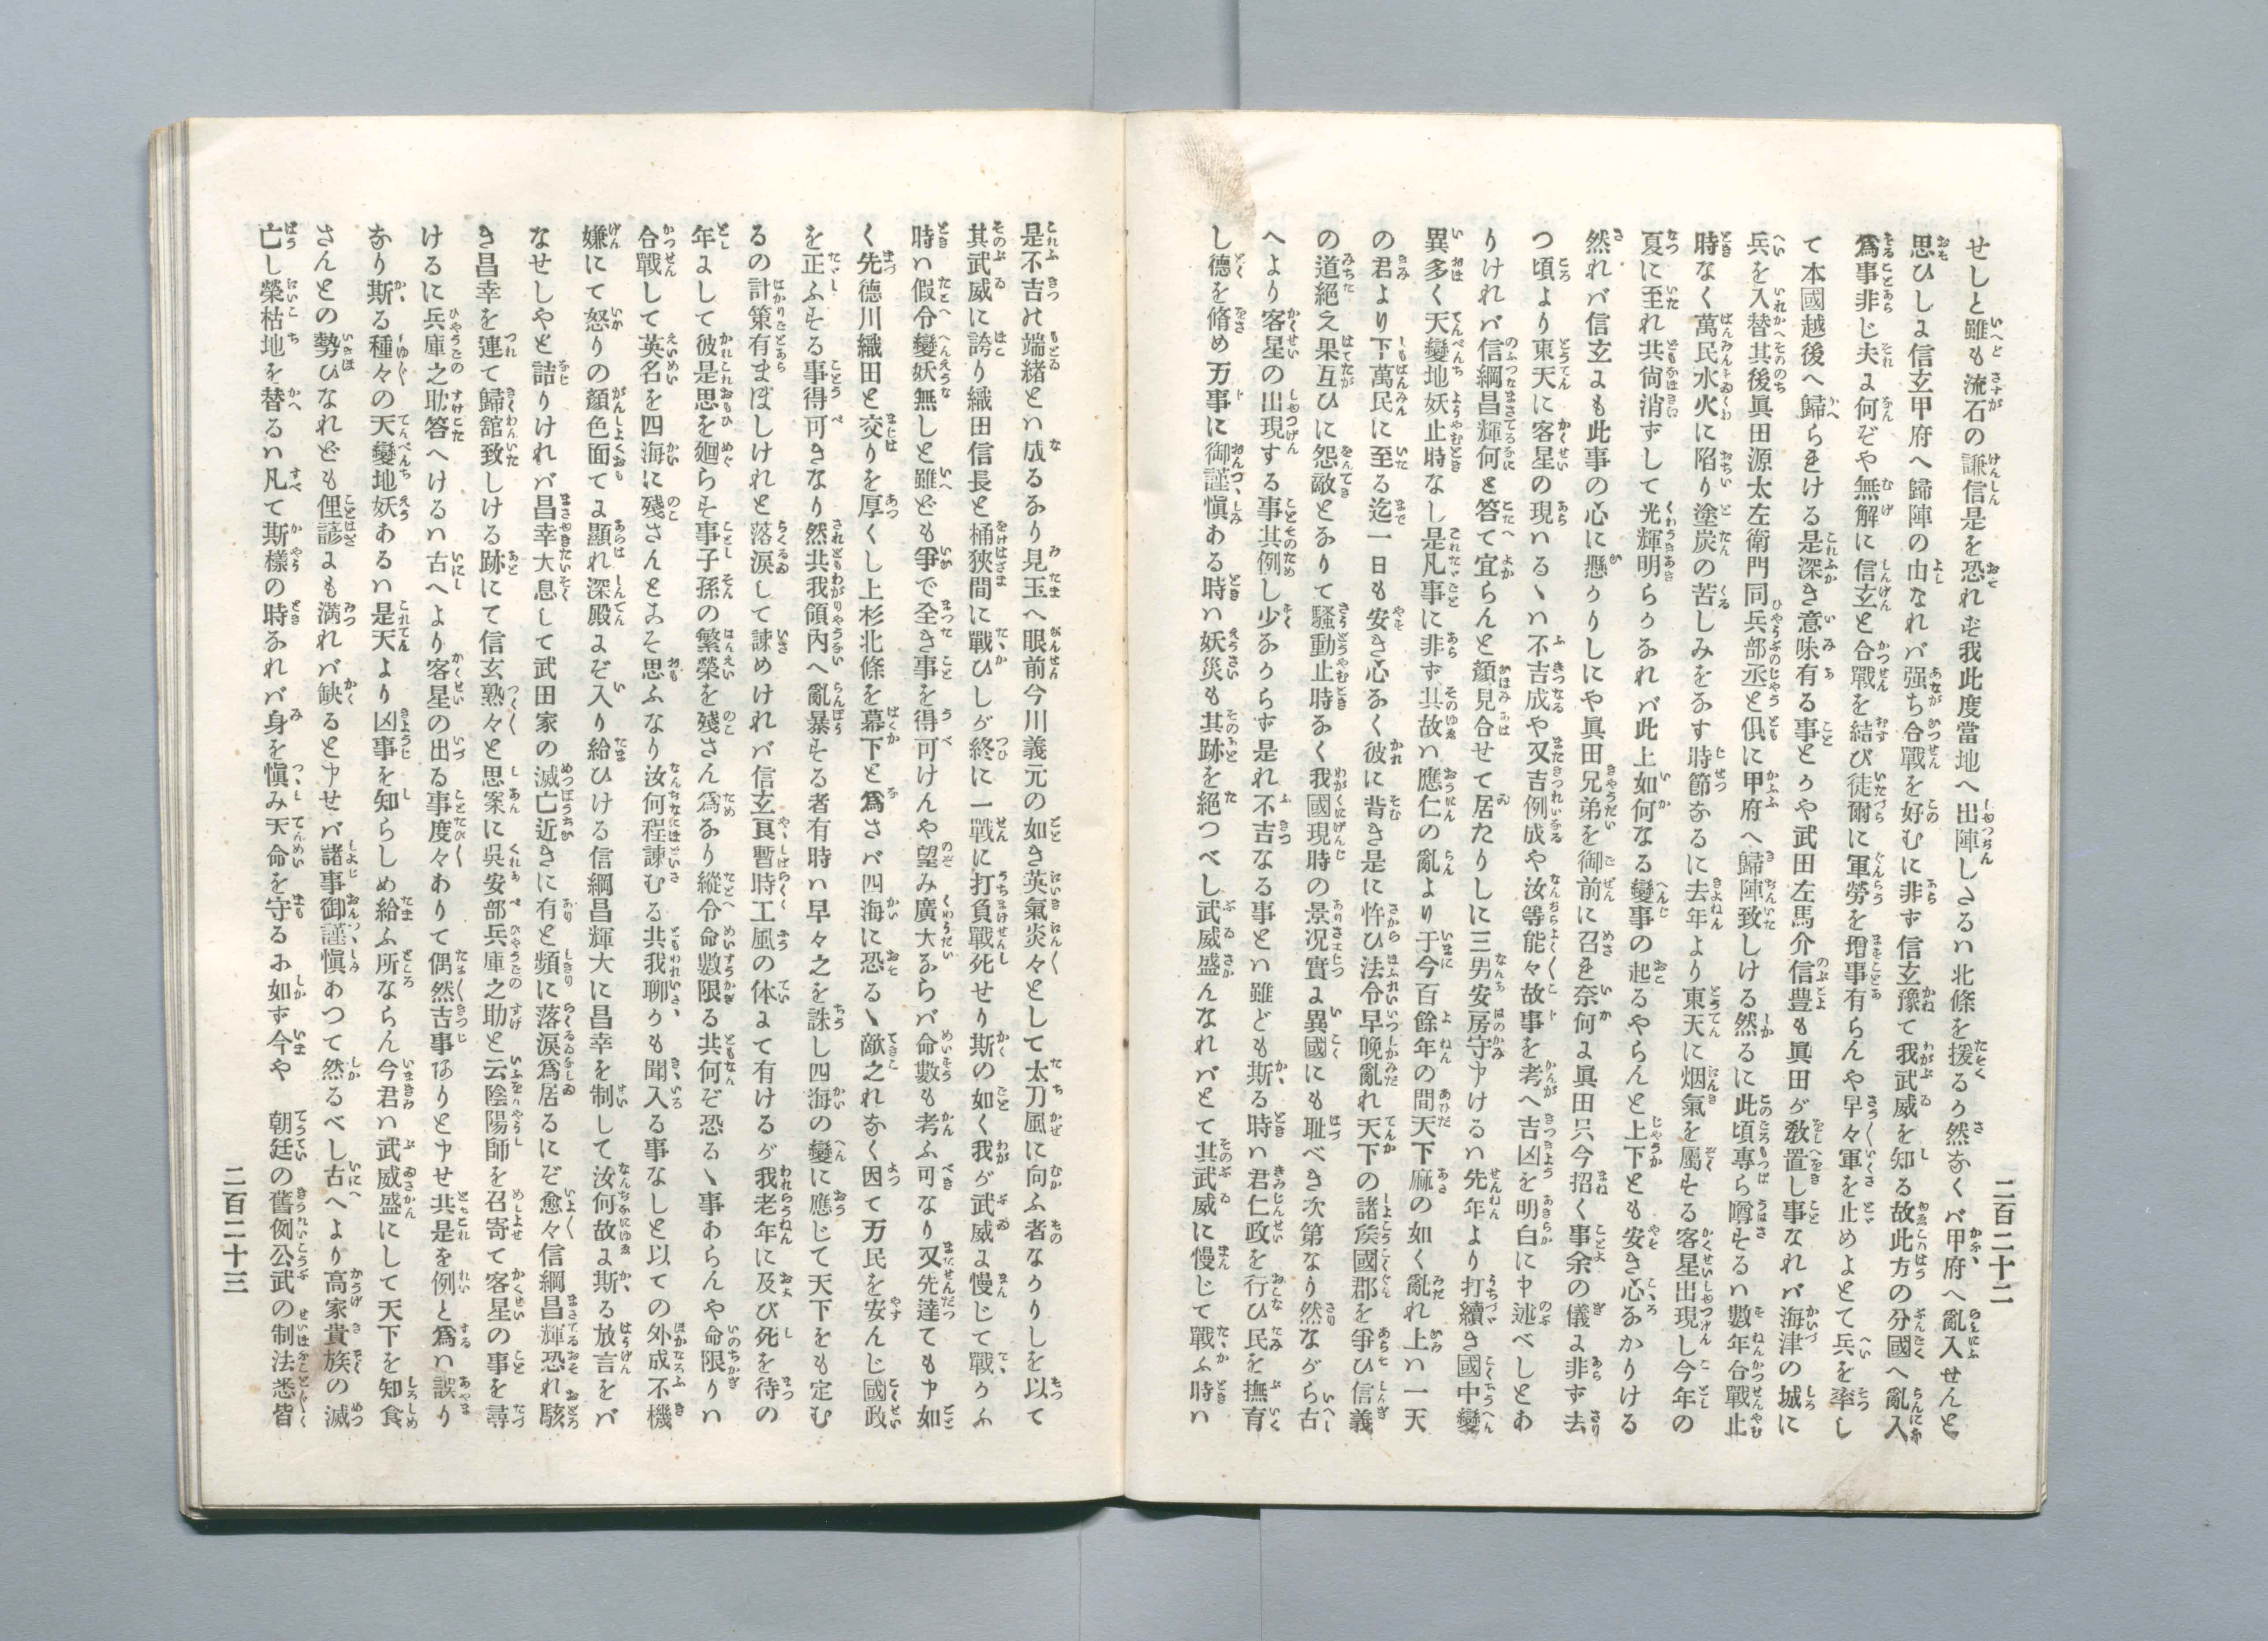 二百二十二
せしと雖も流石の謙信是を恐れど我此度當地へ出陣しさるハ北條を援るう然なくバ甲府へ亂入せんと
思ひしよ信玄甲府へ歸陣の由なれバ强ち合戰を好むに非ず信玄豫て我武威を知る故此方の分國へ亂入
爲事非じ夫よ何ぞや無解に信玄と合戰を結び徒爾に軍勞を增事有らんや早々軍を止めよとて兵を率し
て本國越後へ歸らきける是深き意味有る事とうや武田左馬介信豊も眞田が敎置し事なれバ海津の城に
兵を入替其後眞田源太左衛門同兵部丞と俱に甲府へ歸陣致しける然るに此頃專ら噂するハ數年合戰止
時なく萬民水火に陷り塗炭の苦しみをなす時節なるに去年より東天に烟氣を屬する客星出現し今年の
夏に至れ共尙消ずして光輝明らうなれバ此上如何なる變事の起るやらんと上下とも安き心なかりける
然れバ信玄よも此事の心に懸うりしにや眞田兄弟を御前に召き奈何よ眞田只今招く事余の儀よ非ず去
つ頃より東天に客星の現ハるヽハ不吉成や又吉例成や汝等能々故事を考へ吉凶を明白に申述べしとあ
りけれバ信綱昌輝何と答て宜らんと顏見合せて居たりしに三男安房守申けるハ先年より打續き國中變
異多く天變地妖止時なし是凡事に非ず其故ハ應仁の亂より于今百餘年の間天下麻の如く亂れ上ハ一天
の君より下萬民に至る迄一日も安き心なく彼に背き是に忤ひ法令早晩亂れ天下の諸矦國郡を爭ひ信義
の道絕え果互ひに怨敵となりて騷動止時なく我國現時の景况實よ異國にも耻べき次第なり然ながら古
へより客星の出現する事其例し少なうらず是れ不吉なる事とハ雖ども斯る時ハ君仁政を行ひ民を撫育
し德を脩め万事に御謹愼ある時ハ妖災も其跡を絕つべし武威盛んなれバとて其武威に慢じて戰ふ時ハ
是不吉の端緖とハ成るなり見玉へ眼前今川義元の如き英氣炎々として太刀風に向ふ者なうりしを以て
其武威に誇り織田信長と桶狹間に戰ひしが終に一戰に打負戰死せり斯の如く我が武威よ慢じて戰うふ
時ハ假令變妖無しと雖ども爭で全き事を得可けんや望み廣大ならバ命數も考ふ可なり又先達ても申如
く先德川織田と交りを厚くし上杉北條を幕下と爲さバ四海に恐るヽ敵之れなく因て万民を安んじ國政
を正ふする事得可きなり然共我領內へ亂暴する者有時ハ早々之を誅し四海の變に應じて天下をも定む
るの計策有まほしけれと落淚して諫めけれバ信玄良暫時工風の体よて有けるが我老年に及び死を待の
年よして彼是思を廻らす事子孫の繁榮を殘さん爲なり縱令命數限る共何ぞ恐るヽ事あらんや命限りハ
合戰して英名を四海に殘さんとこそ思ふなり汝何程諫むる共我聊うも聞入る事なしと以ての外成不機
嫌にて怒りの顏色面てよ顯れ深殿よぞ入り給ひける信綱昌輝大に昌幸を制して汝何故よ斯る放言をバ
なせしやと詰りけれバ昌幸大息して武田家の滅亡近きに有と頻に落淚爲居るにぞ愈々信綱昌輝恐れ駭
き昌幸を連て歸舘致しける跡にて信玄熟々と思案に吳安部兵庫之助と云陰陽師を召寄て客星の事を尋
けるに兵庫之助答へけるハ古へより客星の出る事度々ありて偶然吉事ありと申せ共是を例と爲ハ誤り
なり斯る種々の天變地妖あるハ是天より凶事を知らしめ給ふ所ならん今君ハ武威盛にして天下を知食
さんとの勢ひなれども俚諺よも滿れバ缺ると申せバ諸事御謹愼あつて然るべし古へより高家貴族の滅
亡し榮枯地を替るハ凡て斯樣の時なれバ身を愼み天命を守るふ如ず今や　朝廷の舊例公武の制法悉皆
二百二十三